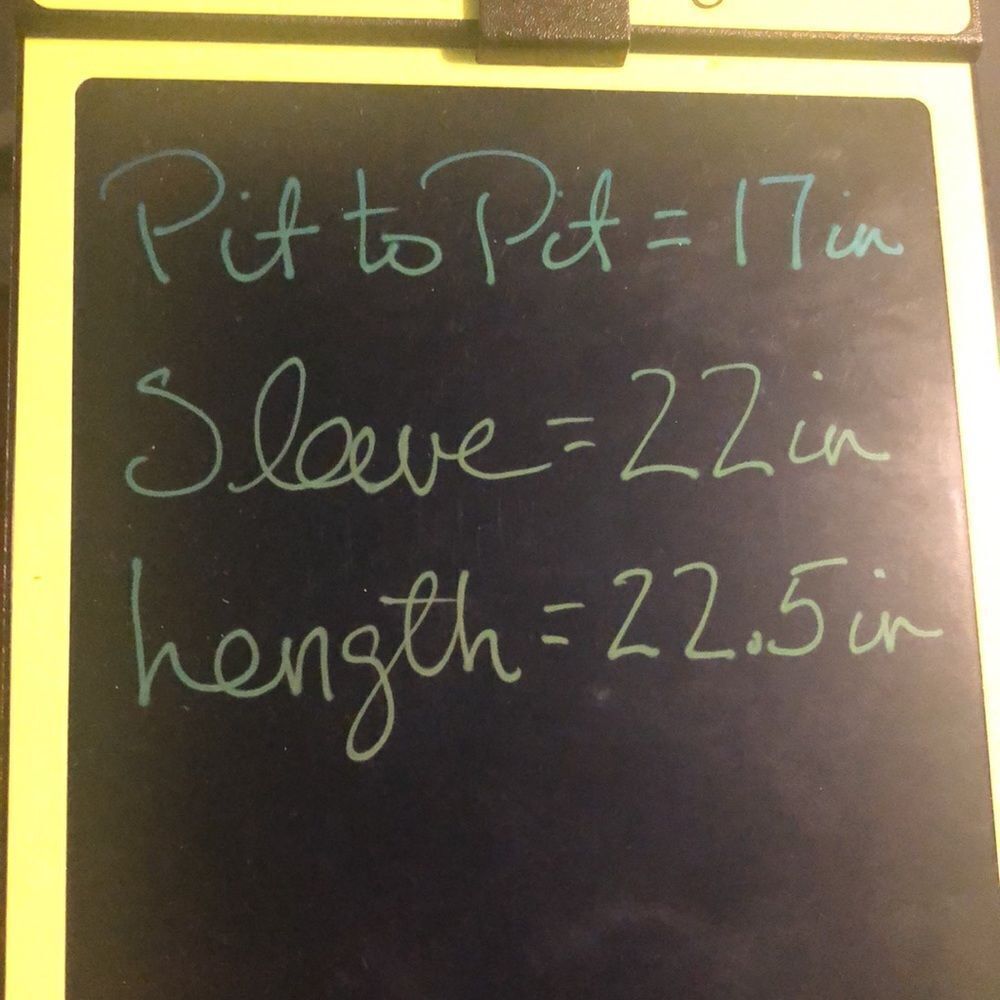 Pit to Pit = 17in
Sleeve = 22in
Length = 22.5in